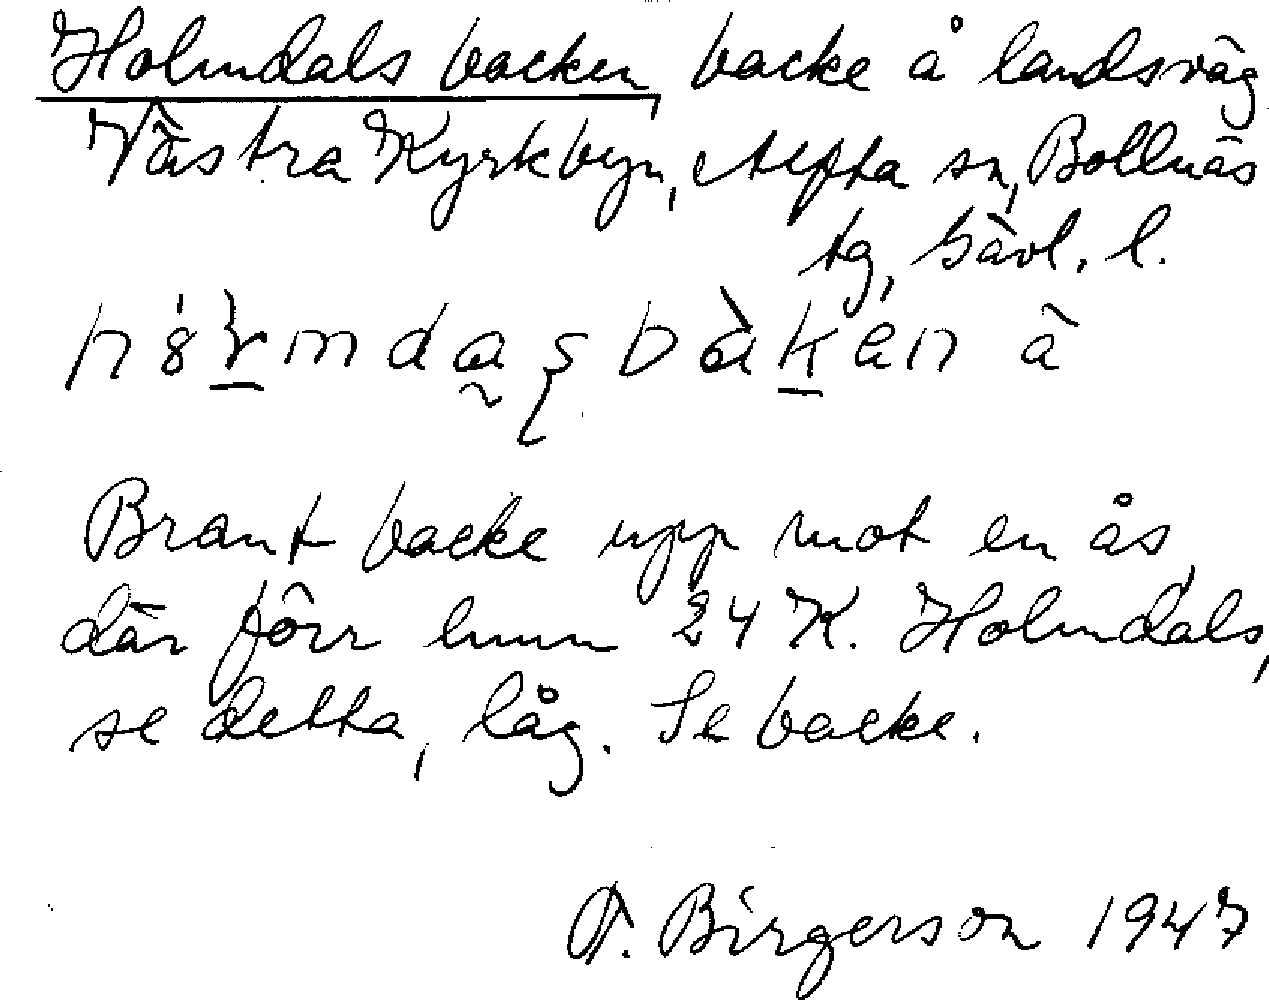 Holmdals backen, backe å landsväg
Västra Kyrkbyn, Alfta sn, Bollnäs
tg, Gävl. l.
Brant backe upp mot en ås,
där förr hmn 24 K. Holmdals,
se detta, låg. Se backe.
Birgerson 1947